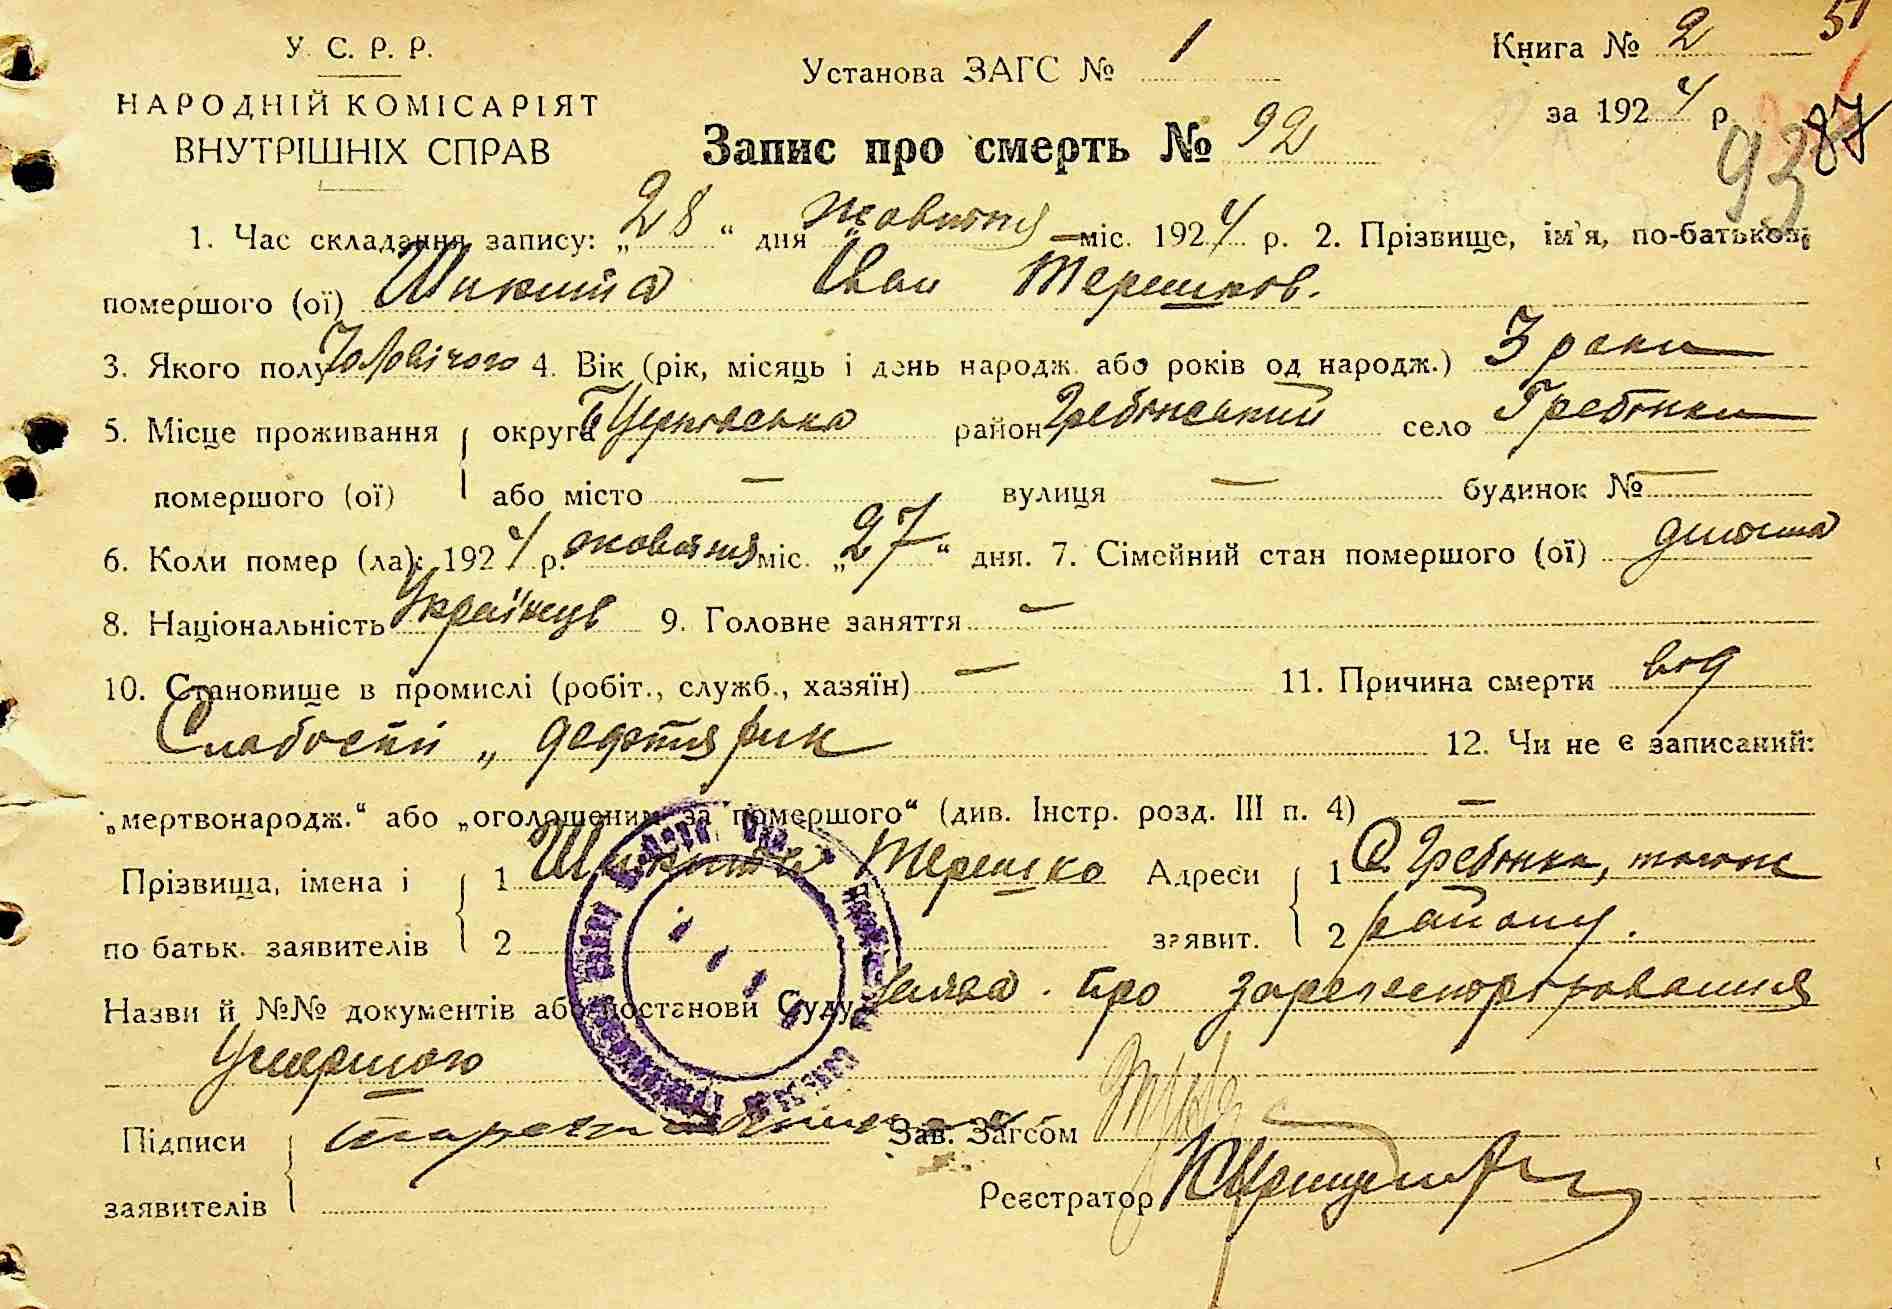 У. С. Р. Р.
НАРОДНІЙ КОМІСАРІЯТ
ВНУТРІШНІХ СПРАВ
Установа ЗАГС № 1
Книга № 2
51
за 1924 р.
87
93
Запис про смерть № 92
1. Час складання запису: „28“ дня жовтня міс. 1924 р. 2. Прізвище, ім'я, по-батькові
помершого (ої) Шикита Іван Терешков.
3. Якого полу Чоловічого 4. Вік (рік, місяць і день народж. або років од народж.) 3 роки
5. Місце проживання округа Б Церковська район Гребінський село Гребінки
помершого (ої) або місто — вулиця — будинок № —
6. Коли помер (ла): 1924 р. жовтня міс. „27“ дня. 7. Сімейний стан помершого (ої) дитина
8. Національність Українець 9. Головне заняття —
10. Становище в промислі (робіт., служб., хазяїн) — 11. Причина смерти від
Слабости „ дефтярик
12. Чи не є записаний:
„мертвонародж.“ або „оголошеним за помершого“ (див. Інстр. розд. III п. 4) —
Прізвища, імена і 1 Шикита Терешко Адреси 1 С. Гребінки, того ж
по батьк. заявителів 2 заявит. 2 району.
Назви й №№ документів або постанови Суду Заява про зарегестрірування
Умершого
Підписи Зав. Загсом
заявителів Реєстратор